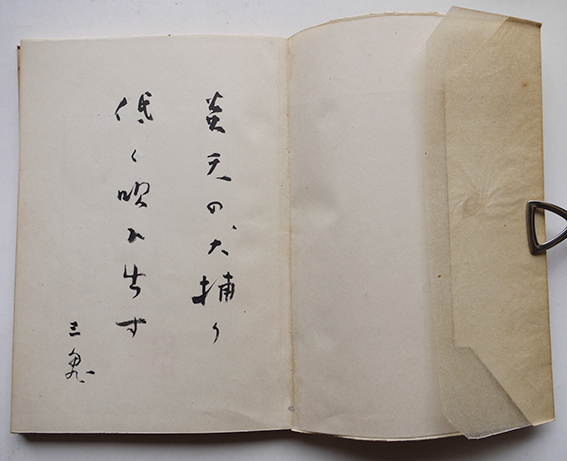 炎天の犬捕り
低く吹れ出す
三鬼